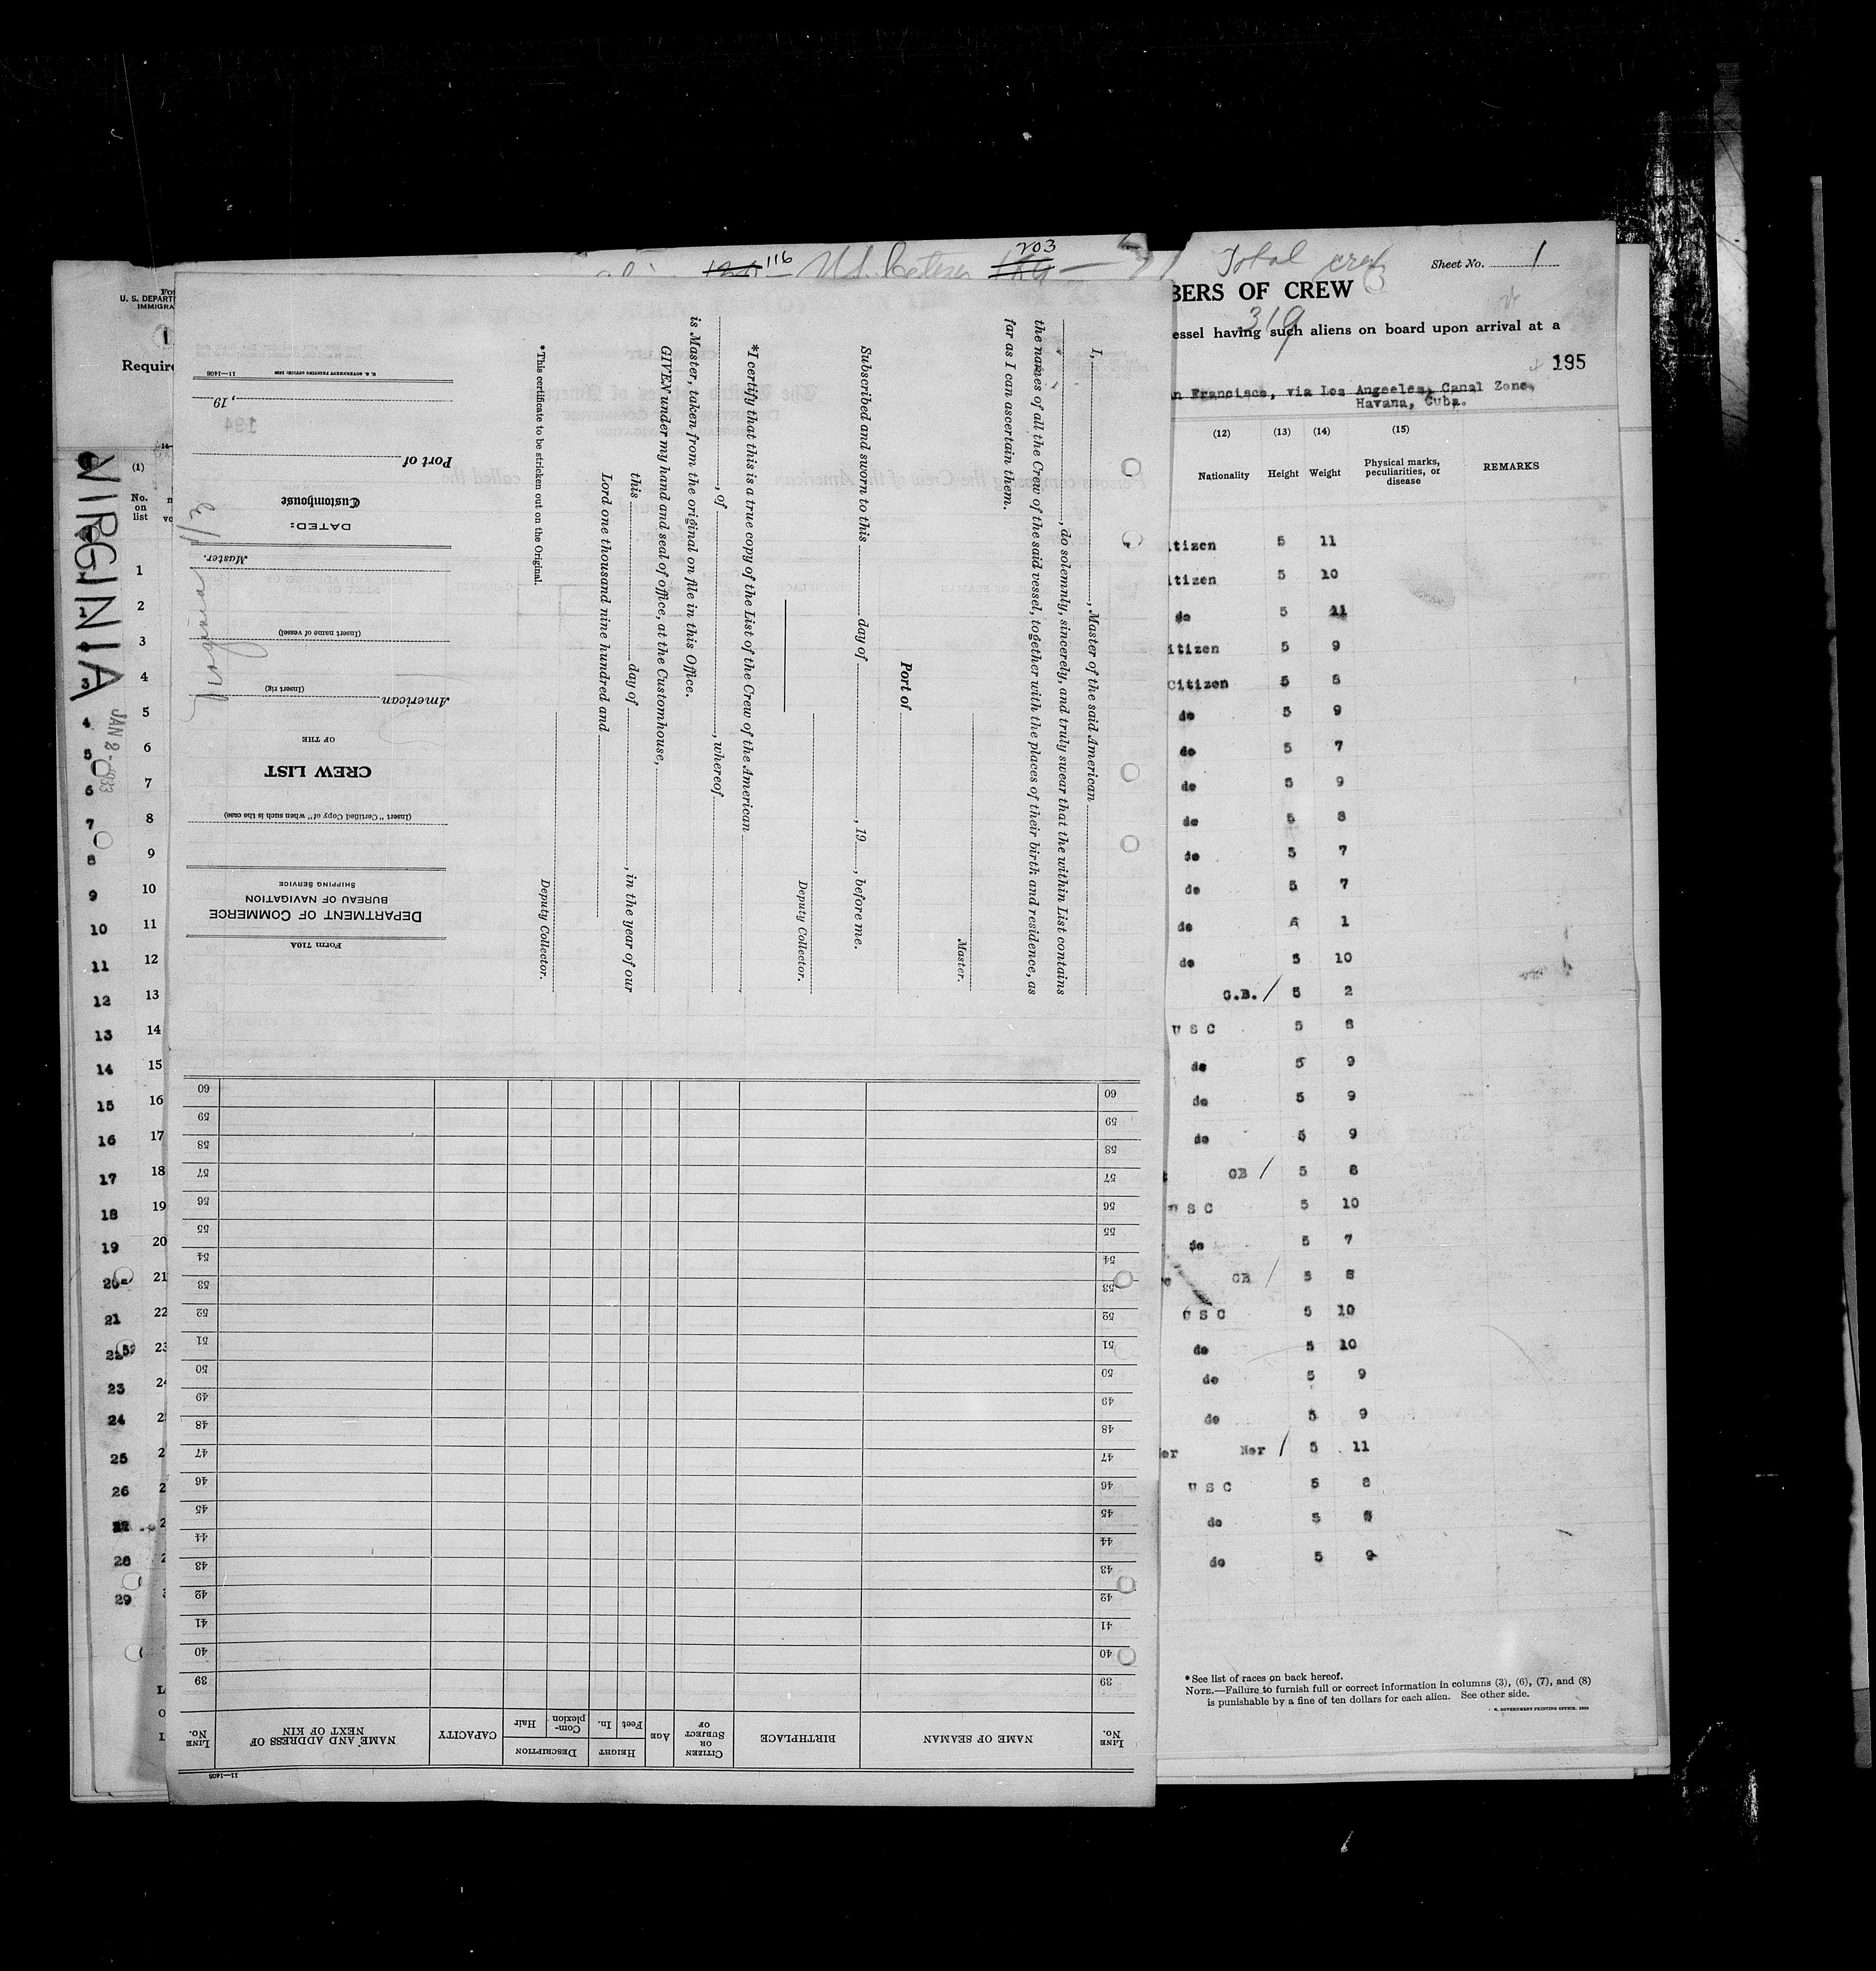 116 203
Total crew
319
Sheet No. 1
BERS OF CREW
essel having such aliens on board upon arrival at a
195
n Francisco, via Los Angeles, Canal Zone,
Havana, Cuba.
(12) (13) (14) (15)
Nationality Height Weight Physical marks, peculiarities, or disease REMARKS
itizen 5 11
itizen 5 10
do 5 11
itizen 5 9
Citizen 5 8
do 5 9
do 5 7
do 5 9
do 5 8
do 5 7
do 5 7
do 6 1
do 5 10
G.B. / 5 2
U S C 5 8
do 5 9
do 5 9
do 5 9
GB / 5 8
U S C 5 10
do 5 7
GB / 5 8
U S C 5 10
do 5 10
do 5 9
do 5 9
er Nor / 5 11
U S C 5 8
do 5
do 5 9
* See list of races on back hereof.
NOTE.—Failure to furnish full or correct information in columns (3), (6), (7), and (8)
is punishable by a fine of ten dollars for each alien. See other side.
U. S. DEPART
IMMIGRA
Require
(1)
No.
on
list
VIRGINIA
JAN 2 - 1933
1
2
3
4
5
6
7
8
9
10
11
12
13
14
15
16
17
18
19
20
21
22
23
3
4
5
6
7
8
9
10
11
12
13
14
15
16
17
18
19
20
21
22
23
24
25
26
28
29
I, , Master of the said American
, do solemnly, sincerely, and truly swear that the within List contains
the names of all the Crew of the said vessel, together with the places of their birth and residence, as
far as I can ascertain them.
Master.
Port of
Subscribed and sworn to this day of , 19 , before me.
Deputy Collector.
*I certify that this is a true copy of the List of the Crew of the American
, of , whereof
is Master, taken from the original on file in this Office.
GIVEN under my hand and seal of office, at the Customhouse,
this day of , in the year of our
Lord one thousand nine hundred and
Deputy Collector.
*This certificate to be stricken out on the Original.
Form 710A
DEPARTMENT OF COMMERCE
BUREAU OF NAVIGATION
SHIPPING SERVICE
(Insert "Certified Copy of" when such is the case)
CREW LIST
OF THE
American
(Insert rig)
Virginia
(Insert name of vessel)
Master.
DATED:
Customhouse
Port of
, 19
11—1408
194
11—1408
LINE No. NAME OF SEAMAN BIRTHPLACE CITIZEN OR SUBJECT OF AGE HEIGHT Feet In. DESCRIPTION Complexion Hair CAPACITY NAME AND ADDRESS OF NEXT OF KIN LINE No.
39 39
40 40
41 41
42 42
43 43
44 44
45 45
46 46
47 47
48 48
49 49
50 50
51 51
52 52
53 53
54 54
55 55
56 56
57 57
58 58
59 59
60 60